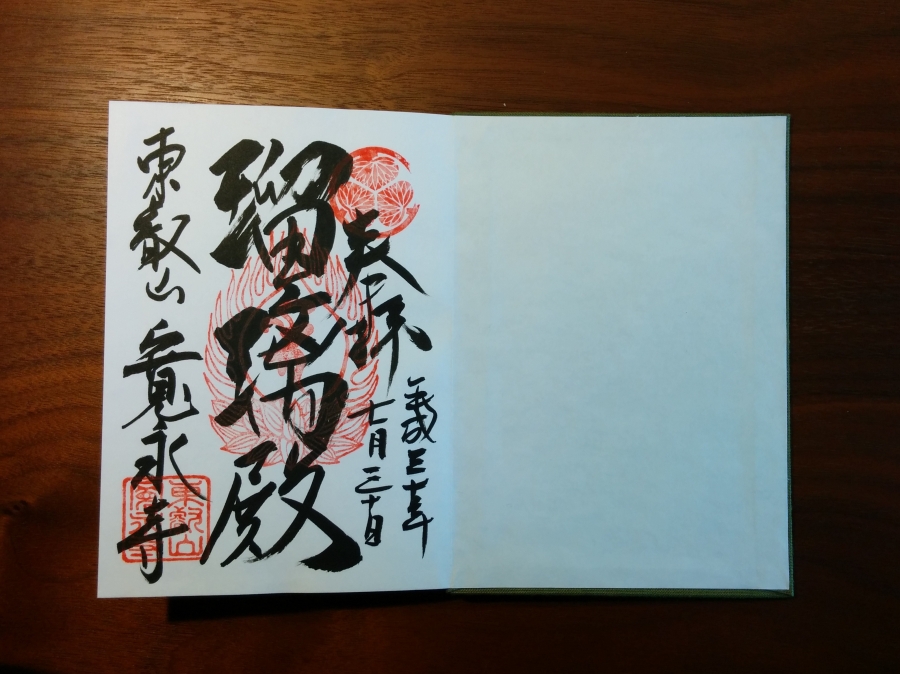 奉拝
平成三十年
七月三十日
瑠璃殿
東叡山 寛永寺
東叡山
寛永寺